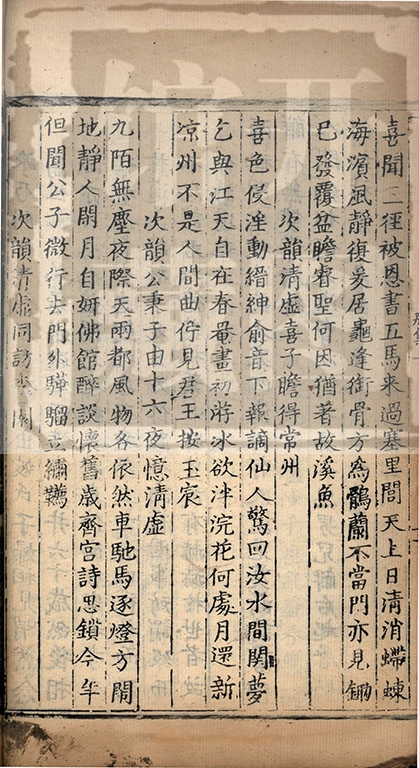 喜聞三徑被恩書五馬來過塞里閭天上日淸消蝃蝀
海濱風靜復爰居龜逢銜骨方爲鶻蘭不當門亦見鋤
已發覆盆瞻睿聖何因猶著故溪魚
次韻淸虛喜子瞻得常州
喜色侵淫動縉紳俞音下報謫仙人驚回汝水間關夢
乞與江天自在春罨畫初游冰欲泮浣花何處月還新
凉州不是人間曲佇見君王按玉宸
次韻公秉子由十六夜憶淸虛
九陌無塵夜際天兩都風物各依然車馳馬逐燈方閙
地靜人閑月自妍佛館醉談懷舊歲齊宮詩思鎖今年
但聞公子微行去門外驊騮立繡韉
次韻淸虛同訪李園